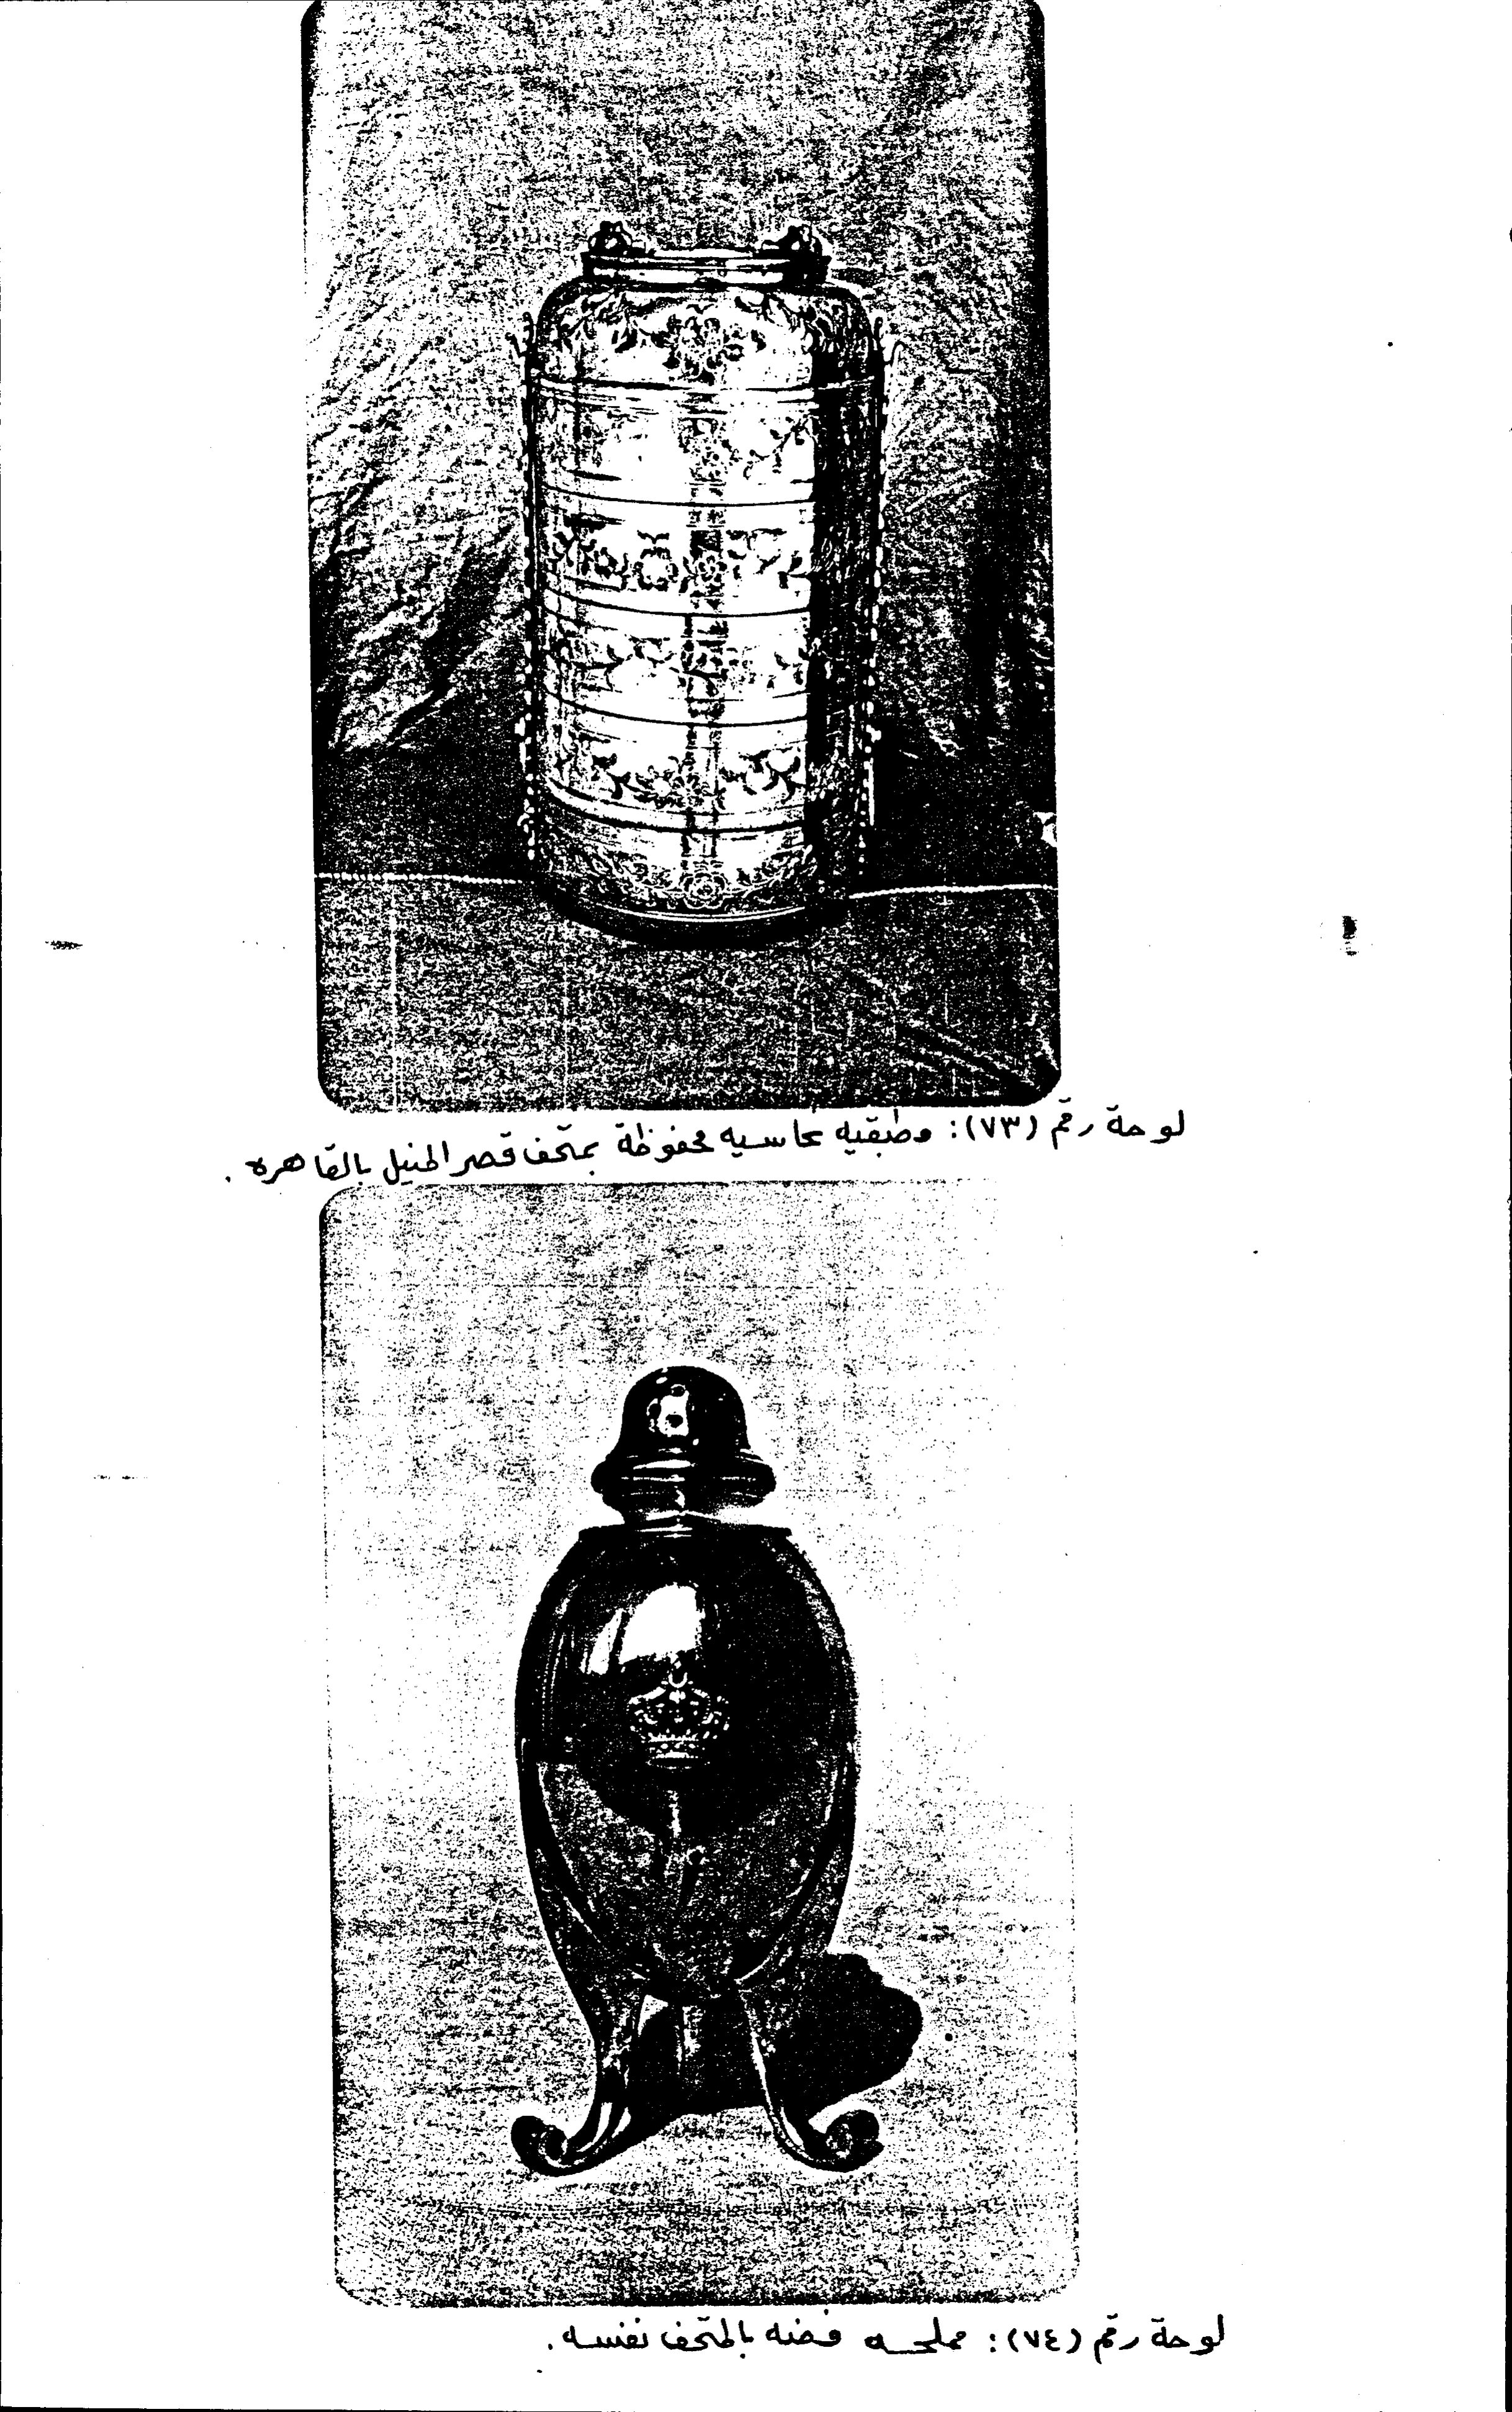 لوحة رقم (٧٣): مطبقيه نحاسيه محفوظة بمتحف قصر المنيل بالقاهره .
لوحة رقم (٧٤): مملحه فضه بالمتحف نفسه .